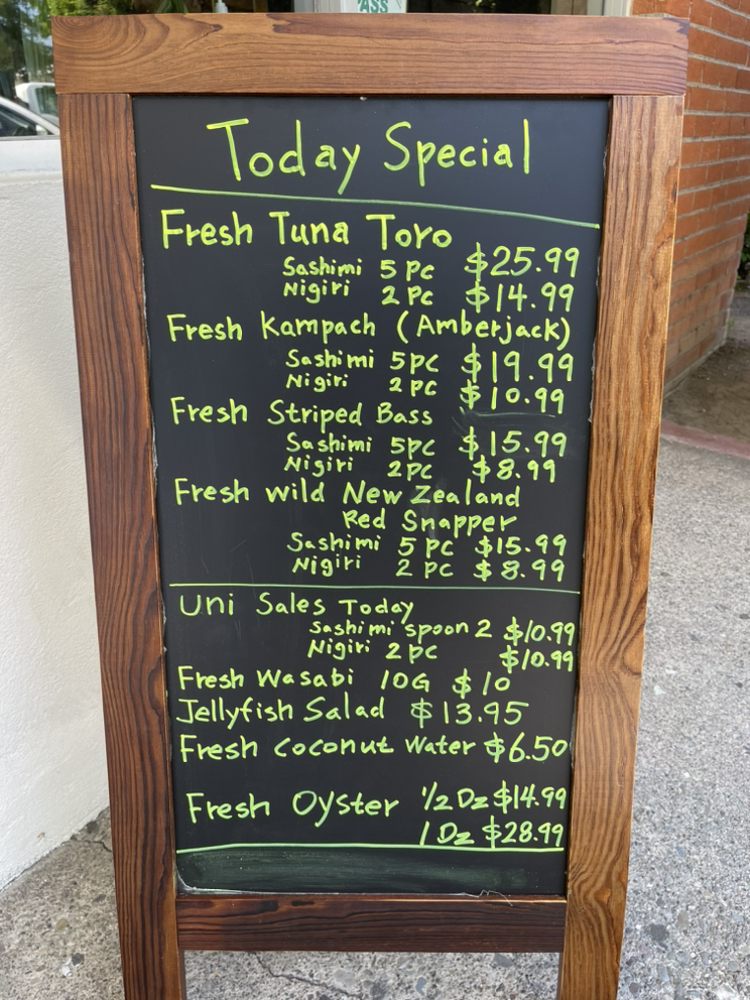 ASS
Today Special
Fresh Tuna Toro
Sashimi 5 Pc $25.99
Nigiri 2 Pc $14.99
Fresh Kampach (Amberjack)
Sashimi 5 PC $19.99
Nigiri 2 PC $10.99
Fresh Striped Bass
Sashimi 5PC $15.99
Nigiri 2PC $8.99
Fresh wild New Zealand
Red Snapper
Sashimi 5 PC $15.99
Nigiri 2 PC $8.99
Uni Sales Today
Sashimi spoon 2 $10.99
Nigiri 2 PC $10.99
Fresh Wasabi 10G $10
Jellyfish Salad $13.95
Fresh Coconut Water $6.50
Fresh Oyster 1/2 Dz $14.99
1 Dz $28.99